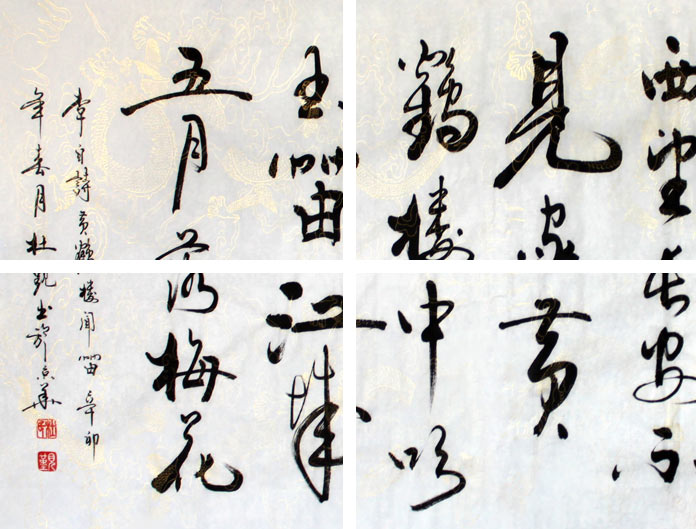 西望长安不
見家黄
鶴楼中吹
玉笛江城
五月落梅花
李白詩黄鶴楼聞笛辛卯
年春月杜书於京華